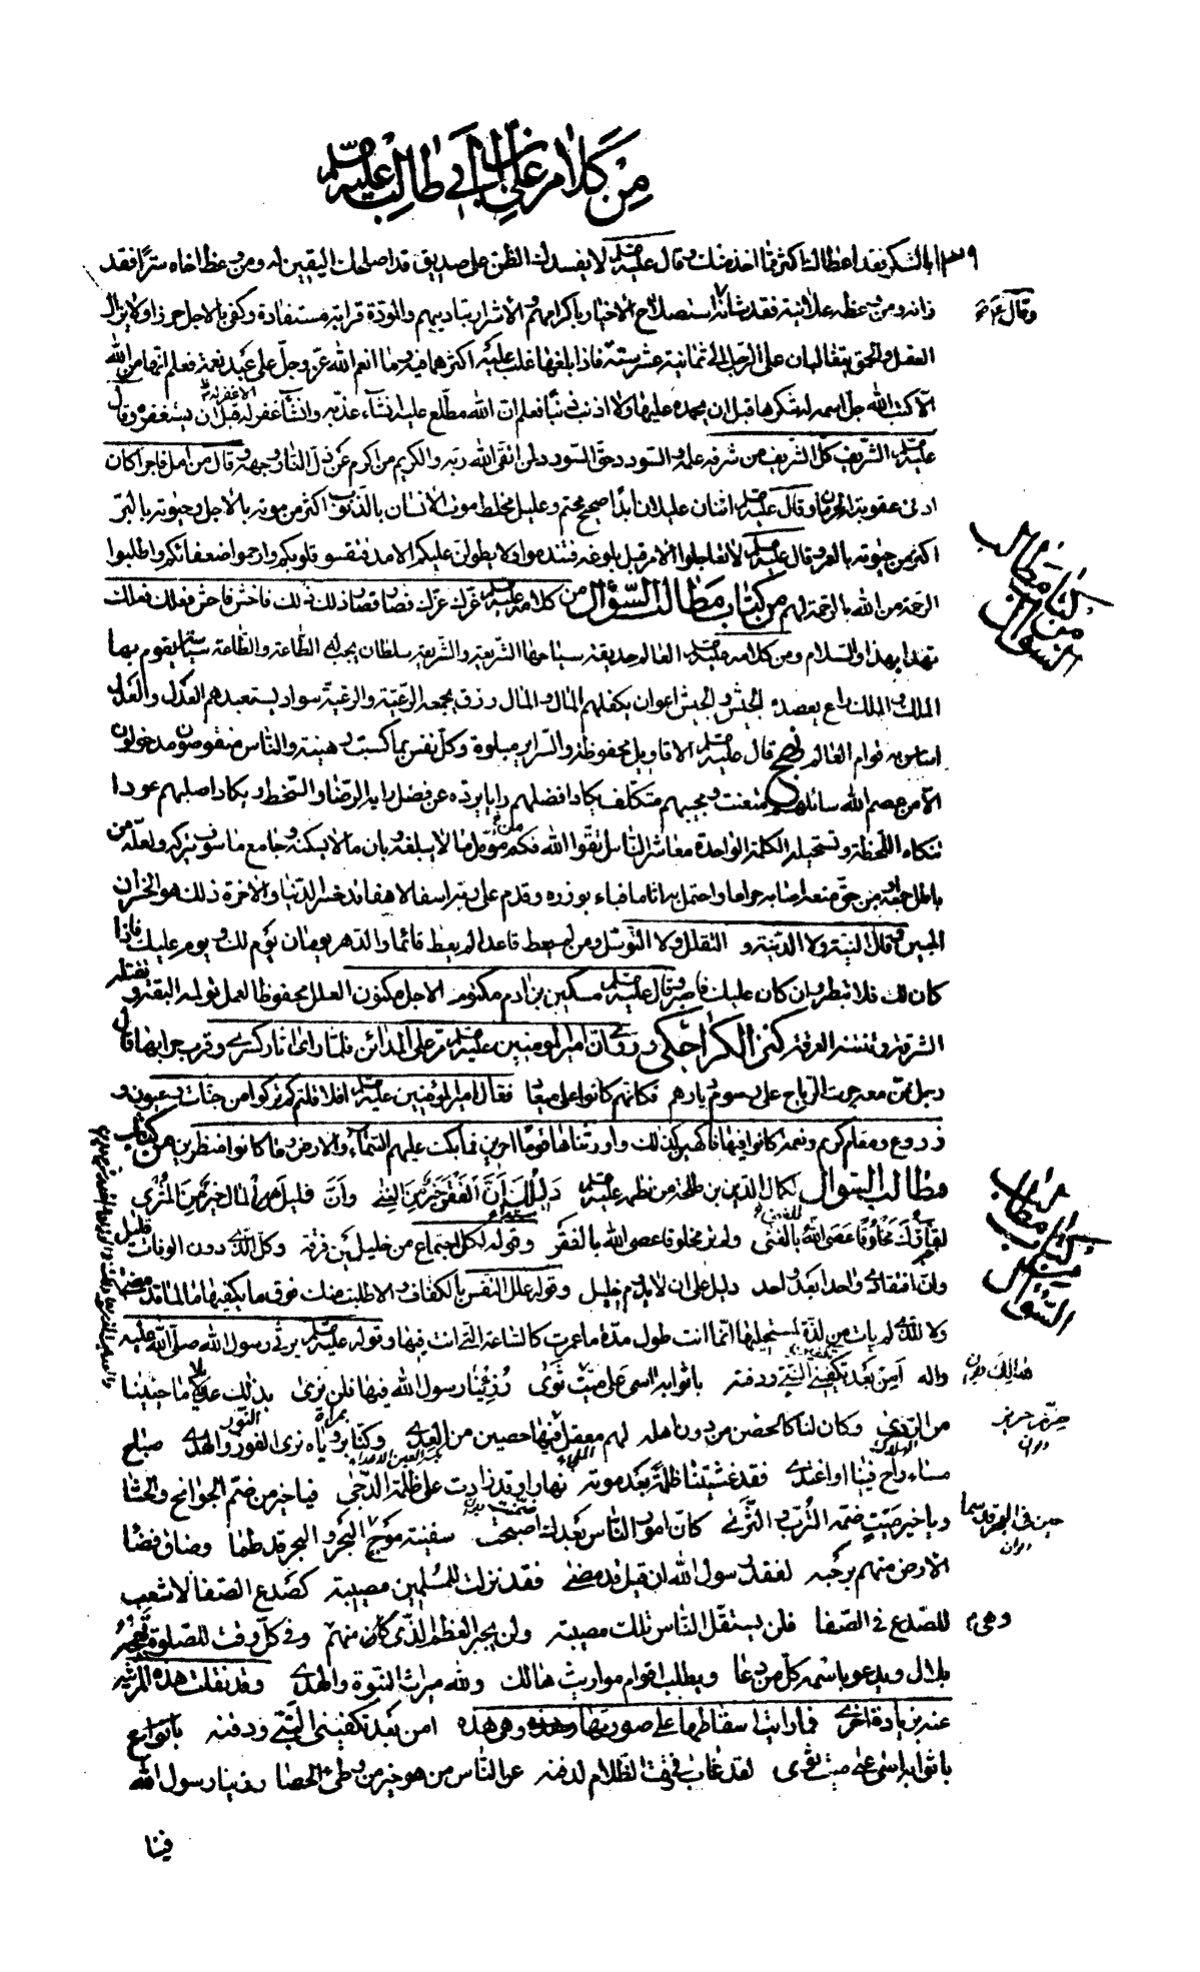 من كلام علي بن أبي طالب عليه السلم
١٣٩ بالشكر فقد اعطالك اكثر مما اخذ منك وقال عليه السلم لا يفسدك الظن على صديق قد اصلحك اليقين له ومن وعظ اخاه سرًا فقد
وقال ع م
زانه ومن وعظه علانية فقد شانه استصلاح الاخيار باكرامهم والاشرار بتاديبهم والمودة قرابة مستفادة وكفى بالاجل حرزا ولا يزال
العقل والحمق يتغالبان على الرجل الى ثمانية عشر سنة فاذا بلغها غلب عليه اكثرهما فيه وما انعم الله عز وجل على عبد نعمة فعلم انها من الله
الا كتب الله جل اسمه له شكرها قبل ان يحمده عليها ولا اذنب ذنبا فعلم ان الله مطلع عليه ان شاء عذبه وان شاء غفر له الا غفر له قبل ان يستغفره وقال
عليه السلم الشريف كل الشريف من شرفه علمه والسودد حق السودد لمن اتقى الله ربه والكريم من اكرم عن ذل النار وجهه وقال من امل فاجرا كان
ادنى عقوبته الحرمان وقال عليه السلم اثنان عليلان ابدًا صحيح محتم وعليل مخلط موت الانسان بالذنوب اكثر من موته بالاجل وحيوته بالبر
اكثر من حيوته بالعمر وقال عليه السلم لا تعاجلوا الامر قبل بلوغه فتندموا ولا يطولن عليكم الامد فتقسو قلوبكم وارحموا ضعفائكم واطلبوا
الرحمة من الله بالرحمة لهم من كتاب مطالب السؤال من كلامه عليه السلم غرك عزك فصار قصار ذلك ذلك فاخش فاحش فعلك فعلك
من كتاب مطالب السؤال
تهدا بهذا والسلام ومن كلامه عليه السلم العالم حديقة سياحها الشريعة والشريعة سلطان يجب له الطاعة والطاعة سياسة يقوم بها
الملك والملك راع يعضده الجيش والجيش اعوان يكفلهم المال والمال رزق يجمعه الرعية والرعية سواد يستعبدهم العدل والعدل
اساس به قوام العالم نهج قال عليه السلم الاقاويل محفوظة والسراير مبلوة وكل نفس بما كسبت رهينة والناس منقوصون مدخولون
الا من عصم الله سائلهم متعنت ومجيبهم متكلف يكاد افضلهم رايا يرده عن فضل رايه الرضا والسخط ويكاد اصلبهم عودا
تنكاه اللحظة وتستحيله الكلمة الواحدة معاشر الناس اتقوا الله فكم من مؤمل ما لا يبلغه وبان ما لا يسكنه وجامع ما سوف يتركه ولعله من
باطل جمعه ومن حق منعه اصابه حراما واحتمل به اثاما فباء بوزره وقدم على ربه اسفا لاهفا قد خسر الدنيا والاخرة ذلك هو الخسران
المبين وقال المنية ولا الدنية و التقلل ولا التوسل ومن لم يعط قاعدا لم يعط قائما والدهر يومان يوم لك ويوم عليك فاذا
كان لك فلا تبطر وان كان عليك فاصبر وقال عليه السلم مسكين بن ادم مكتوم الاجل مكنون العلل محفوظ العمل تولمه البقة وتقتله
الشرقة وتنتنه العرقة كنز الكراجكي وروي ان امير المومنين عليه السلم مر على المدائن فلما راى اثار كسرى وقرب خرابها قال
رجل ممن معه جرت الرياح على رسوم ديارهم فكانهم كانوا على ميعاد فقال امير المومنين عليه السلم افلا قلتم كم تركوا من جنات وعيون و
زروع ومقام كريم ونعمة كانوا فيها فاكهين كذلك واورثناها قوما اخرين فما بكت عليهم السماء والارض وما كانوا منظرين من كتاب
مطالب السؤال لكمال الدين بن طلحة من نظمه عليه السلم دليلك ان الفقر خير من الغنى وان قليل المال خير من المثرى
من كتاب مطالب السؤال
لقاؤك مخلوقًا عصى الله بالغنى ولم تر مخلوقا عصى الله بالفقر وقوله لكل اجتماع من خليلين فرقة وكل الذي دون الوفات قليل
وان افتقادي واحدا بعد واحد دليل على ان لا يدوم خليل وقوله علل النفس بالكفاف والا طلبت منك فوق ما يكفيها ما لما قد مضى
ولا للذي لم يات من لذة لمستحليها انما انت طول مدة ما عمرت كالساعة التي انت فيها وقوله عليه السلم يرثي رسول الله صلى الله عليه
واله امن بعد تكفين النبي ودفنه باثوابه اسى على ميت ثوى رزئنا رسول الله فينا فلن نرى بذلك عديلا ما حيينا
من الردى وكان لنا كالحصن من دون اهله لهم معقل فيها حصين من العدى وكنا برؤياه نرى النور والهدى صباح
مساء راح فينا او اغتدى فقد غشيتنا ظلمة بعد موته نهارا وقد زادت على ظلمة الدجى فيا خير من ضم الجوانح والحشا
ويا خير ميت ضمه الترب والثرى كان امور الناس بعدك اصبحت سفينة موج البحر والبحر قد طما وضاق فضا
الارض منهم برحبه لفقد رسول الله ان قيل قد مضى فقد نزلت للمسلمين مصيبة كصدع الصفا لا شعب
للصدع في الصفا فلن يستقل الناس تلك مصيبة ولن يجبر العظم الذي كان منهم وفي كل وقت للصلوة يهيجه
بلال ويدعو باسمه كل من دعا ويطلب اقوام مواريث هالك ولله ميراث النبوة والهدى وقد نقلت هذه المرثية
عنه بزيادة اخرى فما رايت اسقاطها على صورتها وهي هذه امن بعد تكفيني النبي ودفنه
باثوابه اسى على ميت ثوى لقد غاب في وقت الظلام لدفنه عن الناس من هو خير من وطئ الحصا رزينا رسول الله
فينا